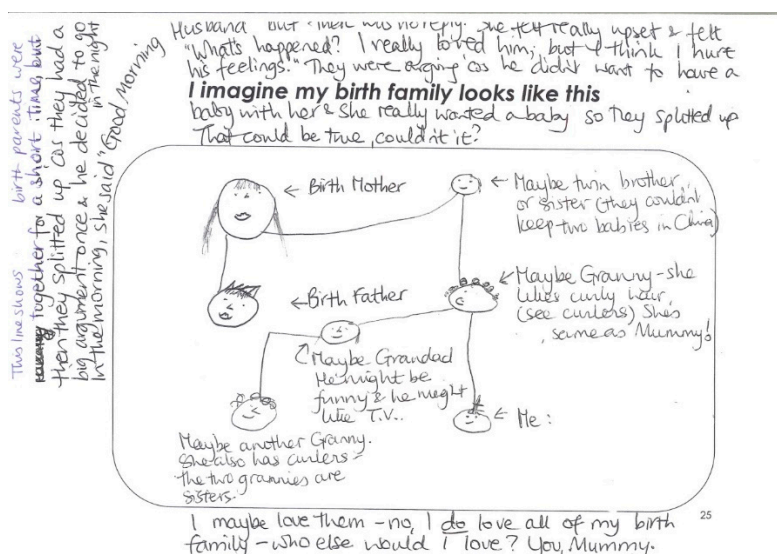 This line shows birth parents were
together for a short time, but
then they splitted up cos they had a
big argument once & he decided to go
in the night
In the morning, she said "Good Morning
Husband" but there was no reply. She felt really upset & felt
"What's happened? I really loved him, but I think I hurt
his feelings." They were arging 'cos he didn't want to have a
I imagine my birth family looks like this
baby with her & she really wanted a baby so they splitted up
That could be true, couldn't it?
← Birth Mother
← Maybe twin brother
or sister (they couldn't
keep two babies in China)
← Birth Father
← Maybe Granny - she
likes curly hair,
(see curlers) She's
same as Mummy!
Maybe Grandad
He might be
funny & he might
like T.V..
← Me:
Maybe another Granny.
She also has curlers -
the two grannies are
sisters.
25
I maybe love them - no, I do love all of my birth
family - who else would I love? You, Mummy.